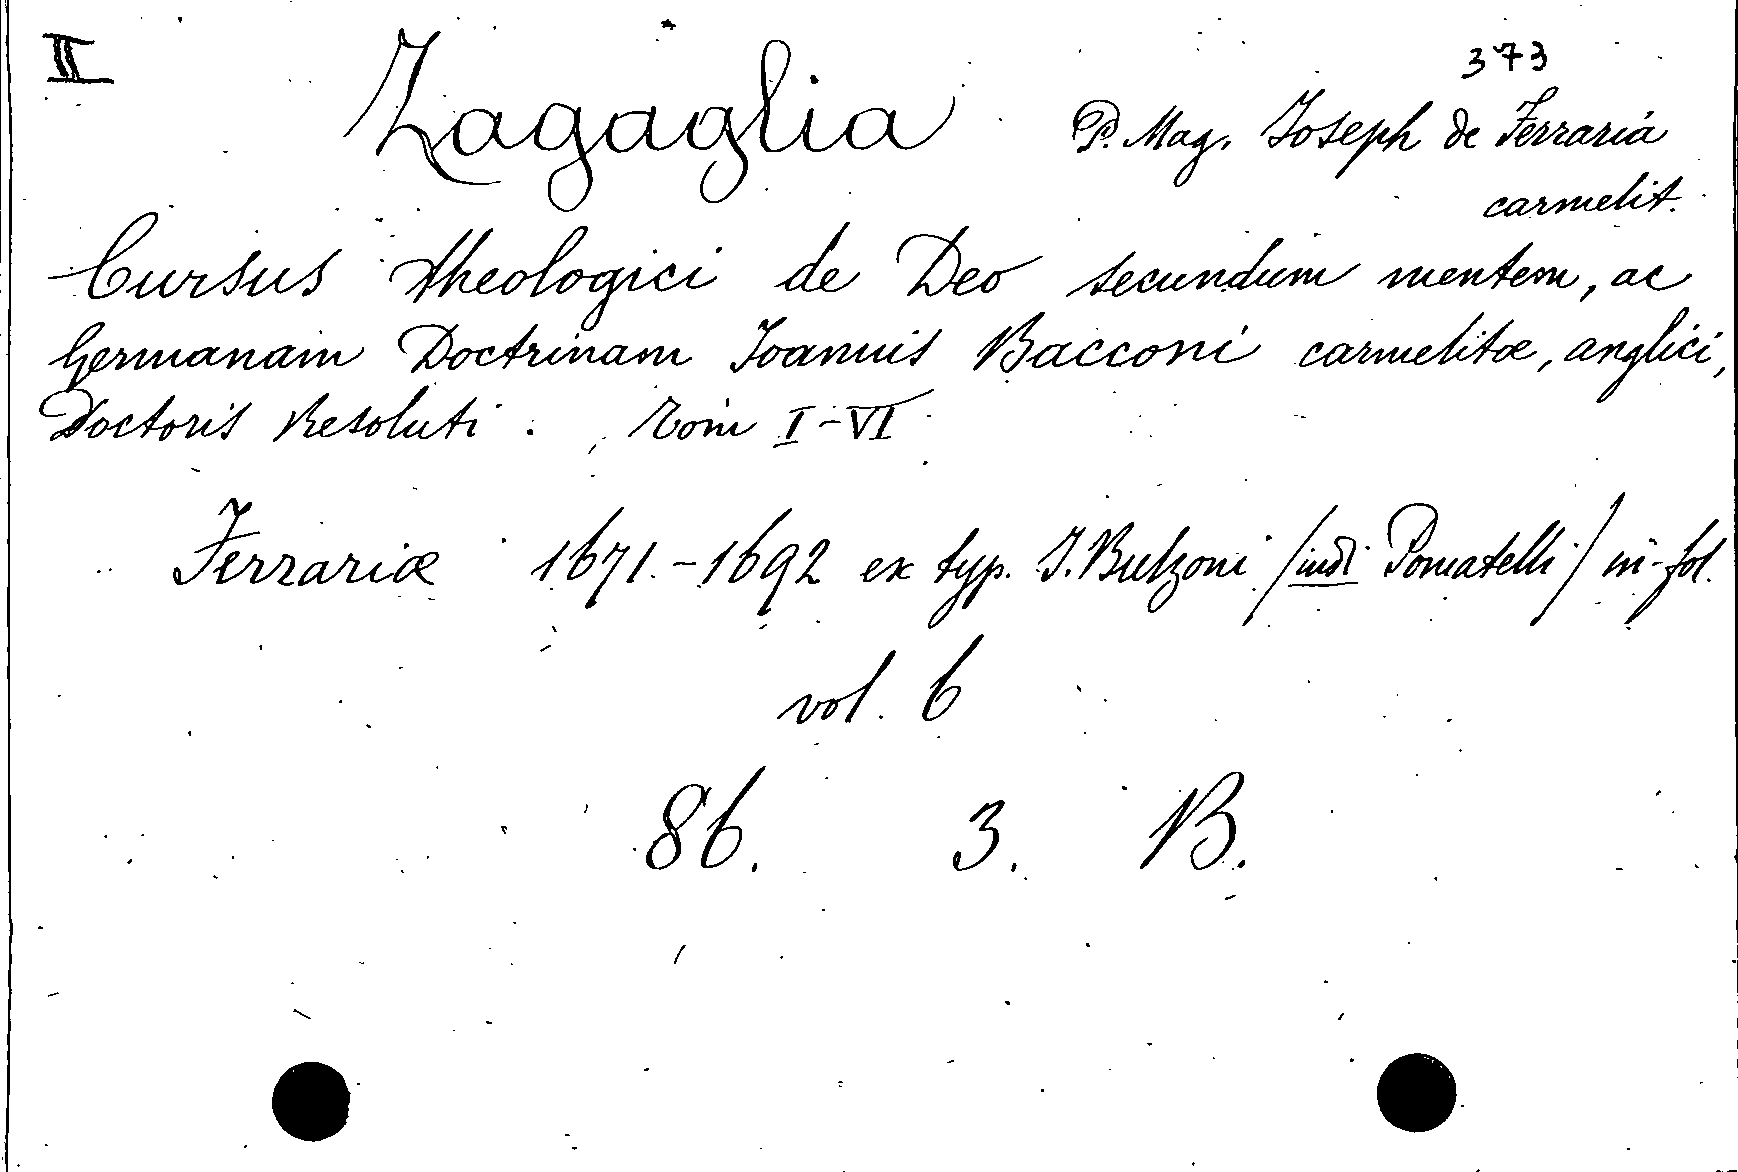 II
373
Zagaglia P. Mag. Joseph de Ferraria
carmelit.
Cursus theologici de Deo secundum mentem, ac
germanam Doctrinam Joannis Bacconi carmelitæ, anglici,
Doctoris Resoluti. Tom I-VI
Ferrariæ 1671.-1692 ex typ. J. Bulzoni /indi Pomatelli/ in-fol.
vol. 6
86. 3. B.